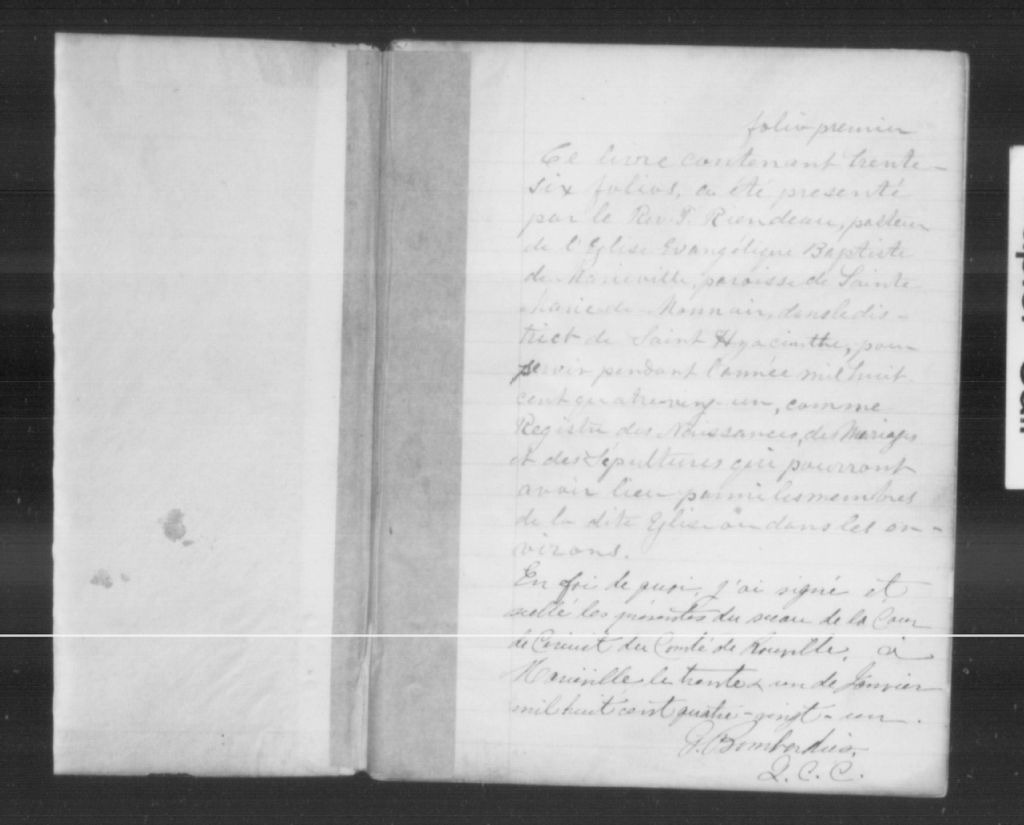 folio premier
Ce livre contenant trente-
six folios, a été presenté
par le Rev T. Riendeau, pasteur
de l'Eglise Evangélique Baptiste
de Marieville, paroisse de Sainte
Marie de Monnoir, dans le dis-
trict de Saint Hyacinthe, pour
servir pendant l'année mil huit
cent quatre-ving-un, comme
Registre des Naissances, des Mariages
et des Sépultures qui pourront
avoir lieu parmi les membres
de la dite Eglise ou dans les en-
virons.
En foi de quoi, j'ai signé et
scellé les présentes du sceau de la Cour
de Circuit du Comté de Rouville, à
Marieville le trente & un de Janvier
mil huit cent quatre-vingt-un.
Bombardier,
C. C.